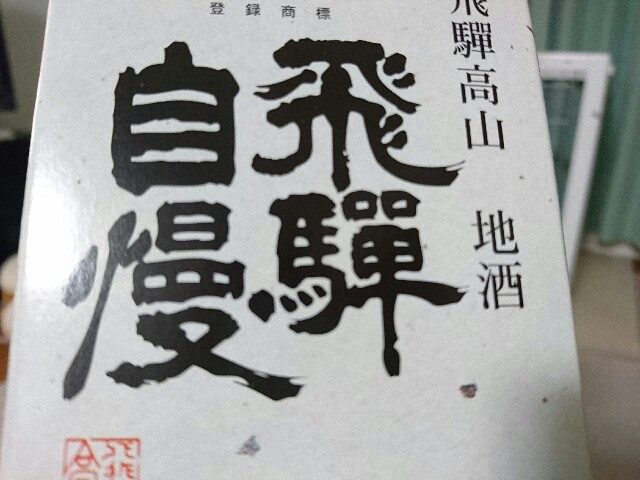 登録商標
飛驒高山 地酒
飛驒
自慢